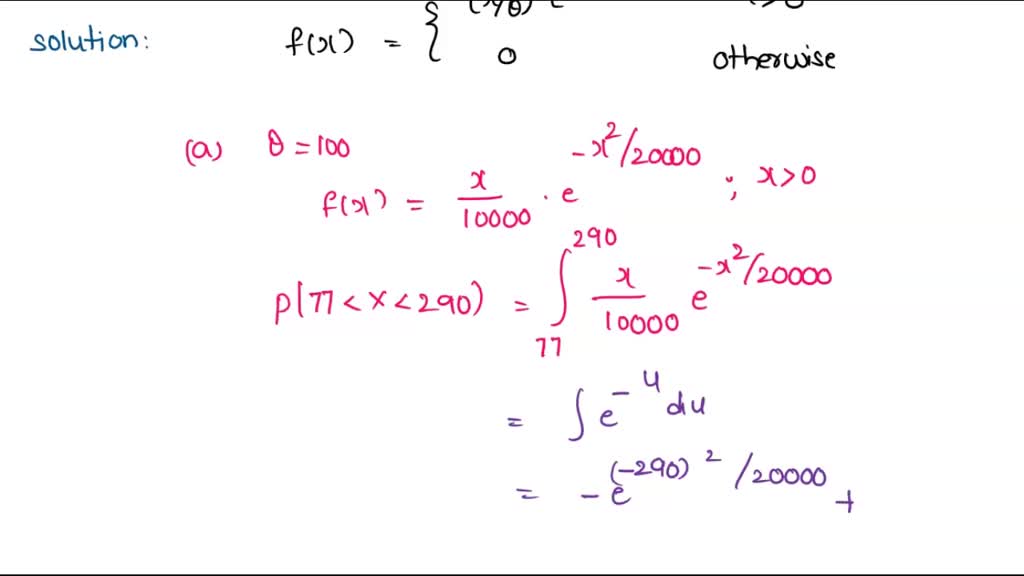 solution: f(x) = { 0 otherwise
(a) θ = 100
f(x) = x/10000 · e^-x²/20000 ; x>0
P(77 < X < 290) = ∫_77^290 x/10000 e^-x²/20000
= ∫ e^-u du
= -e^(-290)²/20000 +